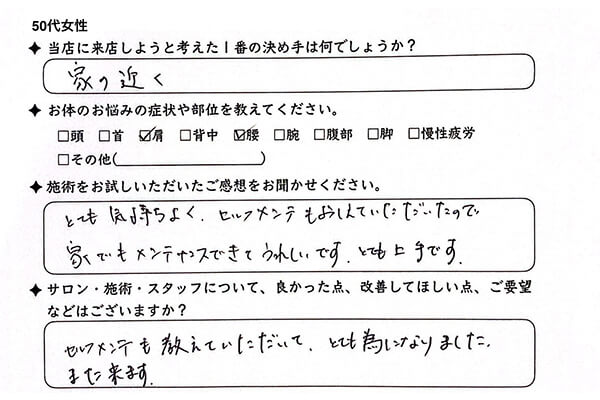 50代女性
✦ 当店に来店しようと考えた1番の決め手は何でしょうか？
家の近く
✦ お体のお悩みの症状や部位を教えてください。
□頭 □首 ☑肩 □背中 ☑腰 □腕 □腹部 □脚 □慢性疲労
□その他( )
✦ 施術をお試しいただいたご感想をお聞かせください。
とても気持ちよく、セルフメンテもおしえていただいたので
家でもメンテナンスできてうれしいです。とても上手です。
✦ サロン・施術・スタッフについて、良かった点、改善してほしい点、ご要望
などはございますか？
セルフメンテも教えていただいて、とても為になりました。
また来ます。